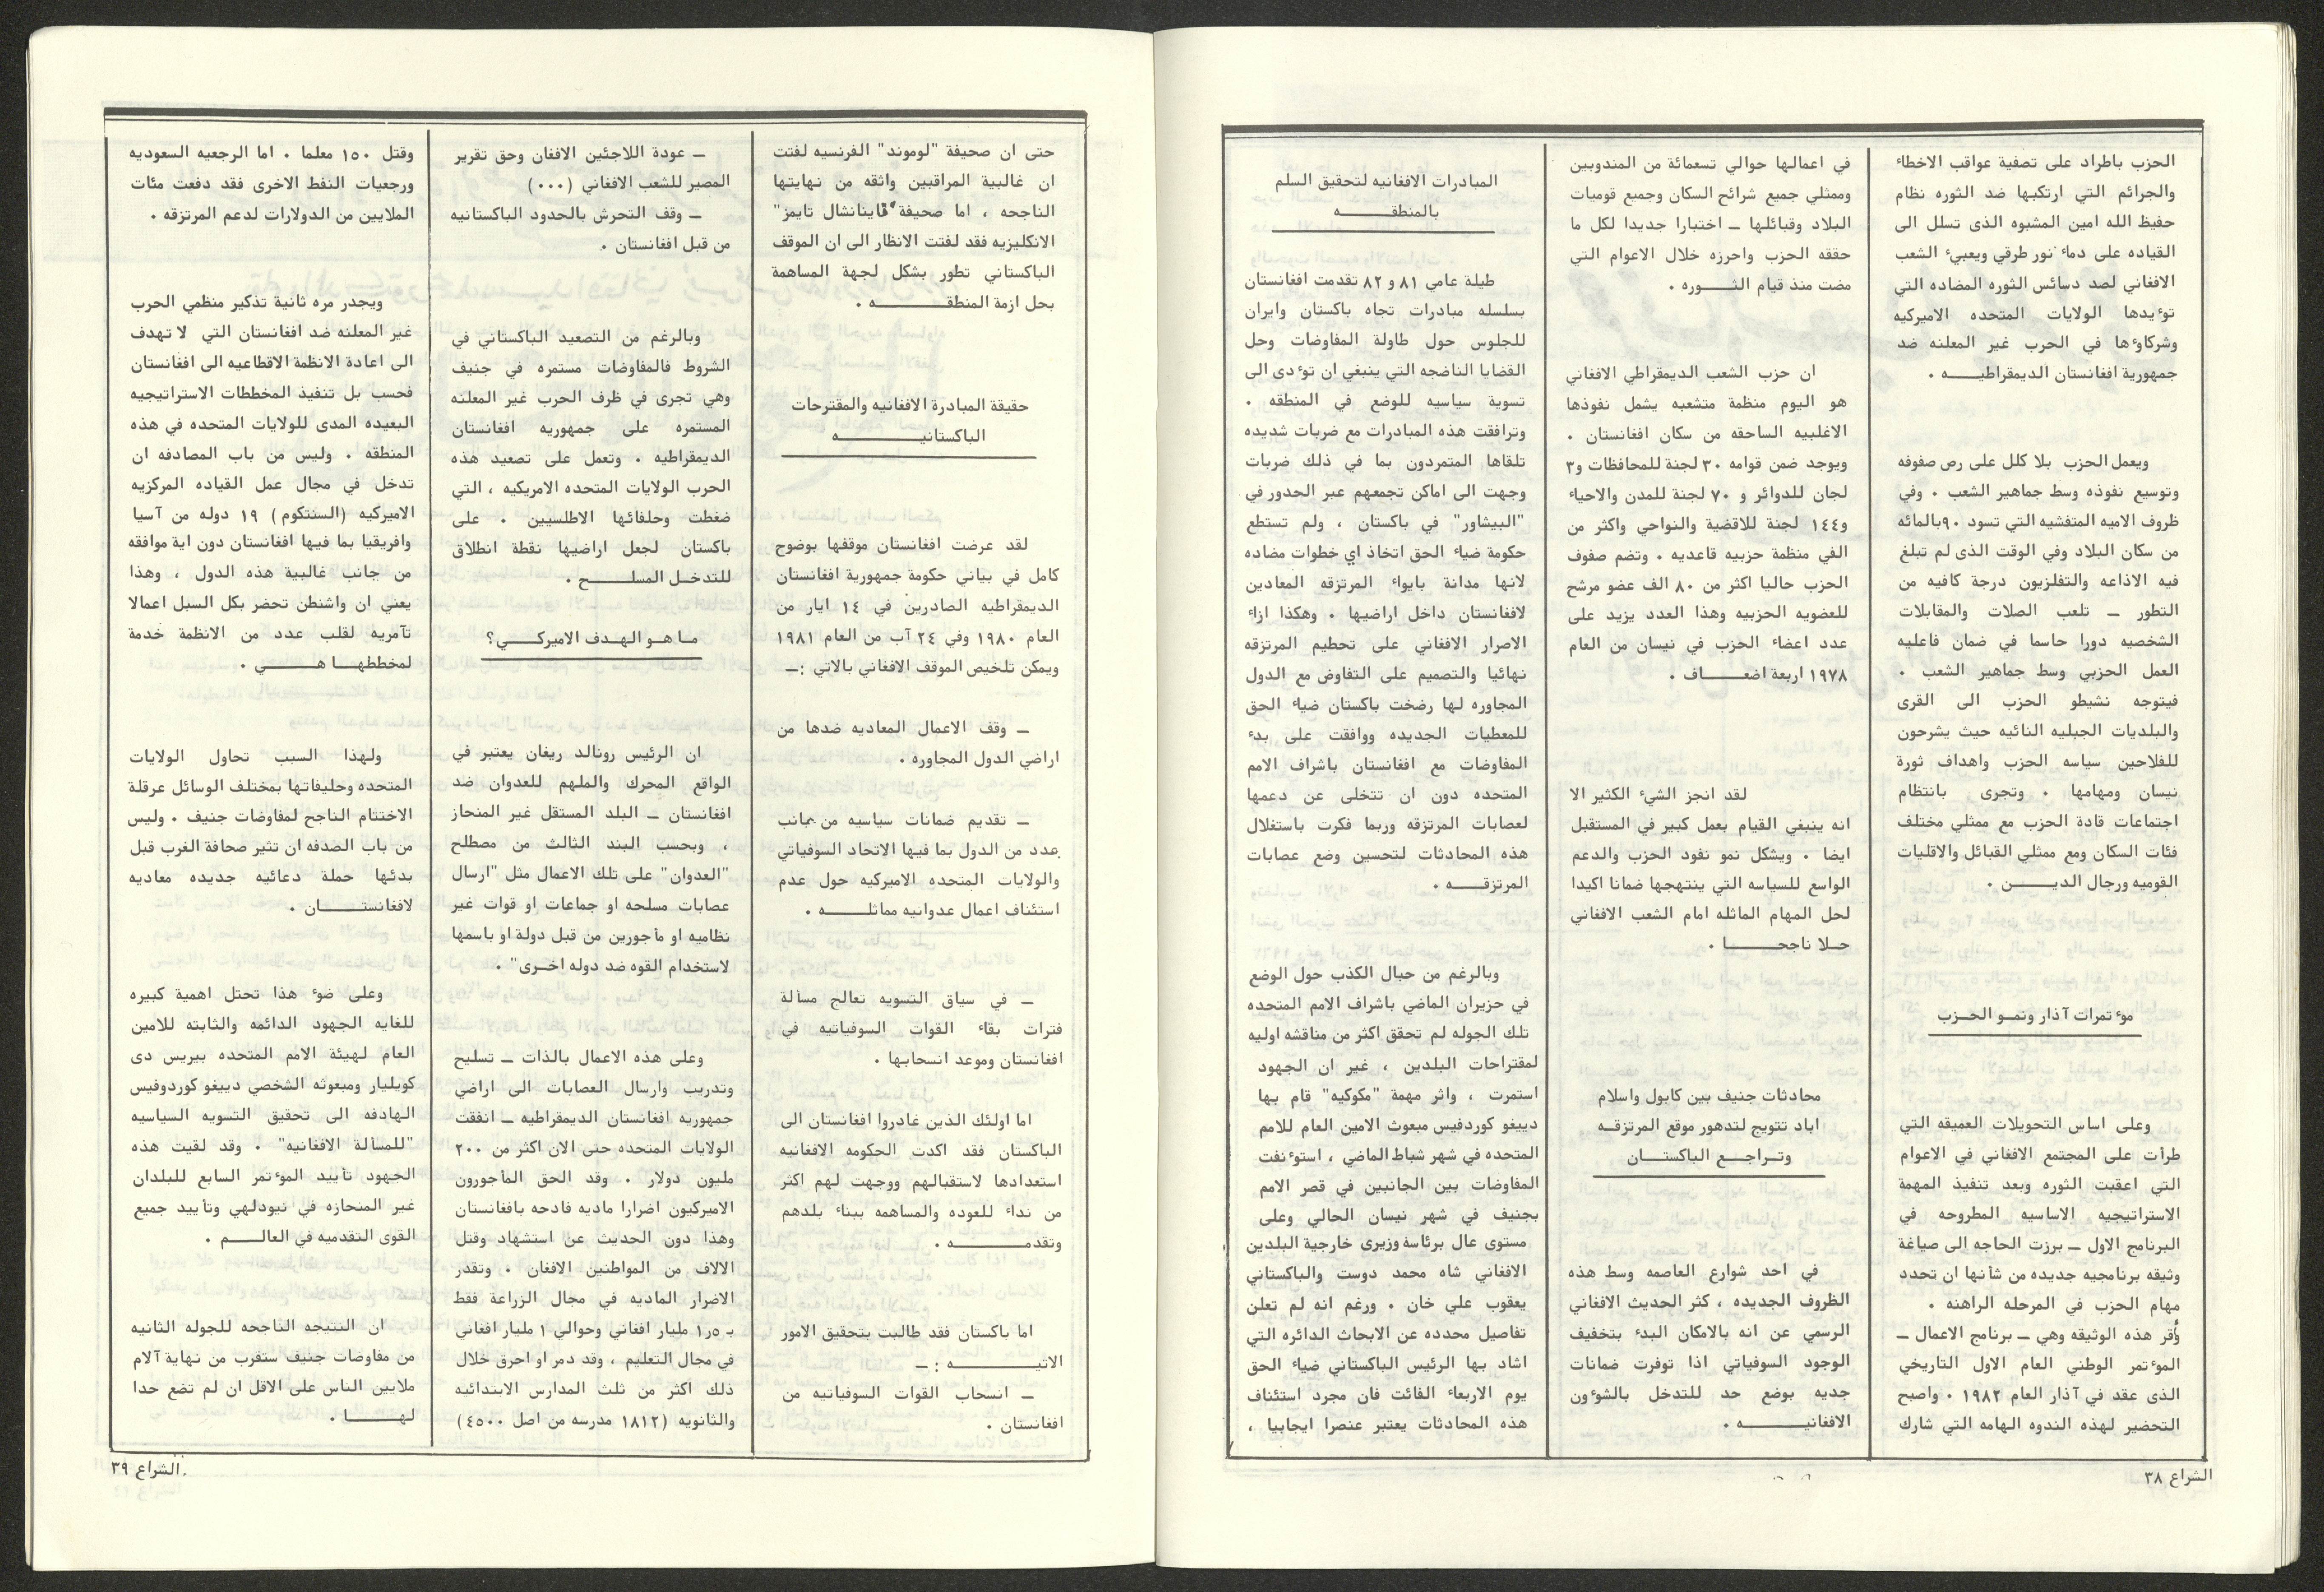 الحزب باطراد على تصفية عواقب الاخطاء
والجرائم التي ارتكبها ضد الثوره نظام
حفيظ الله امين المشبوه الذى تسلل الى
القياده على دماء نور طرقي ويعبيء الشعب
الافغاني لصد دسائس الثوره المضاده التي
تؤيدها الولايات المتحده الاميركيه
وشركاؤها في الحرب غير المعلنه ضد
جمهورية افغانستان الديمقراطيـــه .
ويعمل الحزب بلا كلل على رص صفوفه
وتوسيع نفوذه وسط جماهير الشعب . وفي
ظروف الاميه المتفشيه التي تسود ٩٠بالمائه
من سكان البلاد وفي الوقت الذى لم تبلغ
فيه الاذاعه والتفلزيون درجة كافيه من
التطور ــ تلعب الصلات والمقابلات
الشخصيه دورا حاسما في ضمان فاعليه
العمل الحزبي وسط جماهير الشعب .
فيتوجه نشيطو الحزب الى القرى
والبلديات الجبليه النائيه حيث يشرحون
للفلاحين سياسه الحزب واهداف ثورة
نيسان ومهامها . وتجرى بانتظام
اجتماعات قادة الحزب مع ممثلي مختلف
فئات السكان ومع ممثلي القبائل والاقليات
القوميه ورجال الديــــن .
مؤتمرات آذار ونمـو الحــزب
وعلى اساس التحويلات العميقه التي
طرأت على المجتمع الافغاني في الاعوام
التي اعقبت الثوره وبعد تنفيذ المهمة
الاستراتيجيه الاساسيه المطروحه في
البرنامج الاول ــ برزت الحاجه الى صياغة
وثيقه برنامجيه جديده من شأنها ان تحدد
مهام الحزب في المرحله الراهنه .
وأقر هذه الوثيقه وهي ــ برنامج الاعمال ــ
المؤتمر الوطني العام الاول التاريخي
الذى عقد في آذار العام ١٩٨٢ . واصبح
التحضير لهذه الندوه الهامه التي شارك
في اعمالها حوالي تسعمائة من المندوبين
وممثلي جميع شرائح السكان وجميع قوميات
البلاد وقبائلها ــ اختبارا جديدا لكل ما
حققه الحزب واحرزه خلال الاعوام التي
مضت منذ قيام الثــــوره .
ان حزب الشعب الديمقراطي الافغاني
هو اليوم منظمة متشعبه يشمل نفوذها
الاغلبيه الساحقه من سكان افغانستان .
ويوجد ضمن قوامه ٣٠ لجنة للمحافظات و٣
لجان للدوائر و ٧٠ لجنة للمدن والاحياء
و١٤٤ لجنة للاقضية والنواحي واكثر من
الفي منظمة حزبيه قاعديه . وتضم صفوف
الحزب حاليا اكثر من ٨٠ الف عضو مرشح
للعضويه الحزبيه وهذا العدد يزيد على
عدد اعضاء الحزب في نيسان من العام
١٩٧٨ اربعة اضعـــــاف .
لقد انجز الشيء الكثير الا
انه ينبغي القيام بعمل كبير في المستقبل
ايضا . ويشكل نمو نفود الحزب والدعم
الواسع للسياسه التي ينتهجها ضمانا اكيدا
لحل المهام الماثله امام الشعب الافغاني
حــلا ناجحــــــــا .
محادثات جنيف بين كابول واسلام
اباد تتويج لتدهور موقع المرتزقــه
وتــراجـــع الباكستـــان
في احد شوارع العاصمه وسط هذه
الظروف الجديده ، كثر الحديث الافغاني
الرسمي عن انه بالامكان البدء بتخفيف
الوجود السوفياتي اذا توفرت ضمانات
جديه بوضع حد للتدخل بالشؤون
الافغانيــــــــــه .
المبادرات الافغانيه لتحقيق السلم
بالمنطقــــــــه
طيلة عامي ٨١ و ٨٢ تقدمت افغانستان
بسلسله مبادرات تجاه باكستان وايران
للجلوس حول طاولة المفاوضات وحل
القضايا الناضجه التي ينبغي ان تؤدى الى
تسوية سياسيه للوضع في المنطقه .
وترافقت هذه المبادرات مع ضربات شديده
تلقاها المتمردون بما في ذلك ضربات
وجهت الى اماكن تجمعهم عبر الحدور في
"البيشاور" في باكستان ، ولم تستطع
حكومة ضياء الحق اتخاذ اي خطوات مضاده
لانها مدانة بايواء المرتزقه المعادين
لافغانستان داخل اراضيها . وهكذا ازاء
الاصرار الافغاني على تحطيم المرتزقه
نهائيا والتصميم على التفاوض مع الدول
المجاوره لها رضخت باكستان ضياء الحق
للمعطيات الجديده ووافقت على بدء
المفاوضات مع افغانستان باشراف الامم
المتحده دون ان تتخلى عن دعمها
لعصابات المرتزقه وربما فكرت باستغلال
هذه المحادثات لتحسين وضع عصابات
المرتزقــــه .
وبالرغم من حبال الكذب حول الوضع
في حزيران الماضي باشراف الامم المتحده
تلك الجوله لم تحقق اكثر من مناقشه اوليه
لمقتراحات البلدين ، غير ان الجهود
استمرت ، واثر مهمة "مكوكيه" قام بها
دييغو كوردفيس مبعوث الامين العام للامم
المتحده في شهر شباط الماضي ، استؤنفت
المفاوضات بين الجانبين في قصر الامم
بجنيف في شهر نيسان الحالي وعلى
مستوى عال برئاسة وزيرى خارجية البلدين
الافغاني شاه محمد دوست والباكستاني
يعقوب علي خان . ورغم انه لم تعلن
تفاصيل محدده عن الابحاث الدائره التي
اشاد بها الرئيس الباكستاني ضياء الحق
يوم الاربعاء الفائت فان مجرد استئناف
هذه المحادثات يعتبر عنصرا ايجابيا ،
الشراع ٣٨
حتى ان صحيفة "لوموند" الفرنسيه لفتت
ان غالبية المراقبين واثقه من نهايتها
الناجحه ، اما صحيفة "فاينانشال تايمز"
الانكليزيه فقد لفتت الانظار الى ان الموقف
الباكستاني تطور بشكل لجهة المساهمة
بحل ازمة المنطقــــــــه .
حقيقة المبادرة الافغانيه والمقترحات
الباكستانيـــــــــــه
لقد عرضت افغانستان موقفها بوضوح
كامل في بياني حكومة جمهورية افغانستان
الديمقراطيه الصادرين في ١٤ ايار من
العام ١٩٨٠ وفي ٢٤ آب من العام ١٩٨١
ويمكن تلخيص الموقف الافغاني بالاتي :ــ
ــ وقف الاعمال المعاديه ضدها من
اراضي الدول المجاوره .
ــ تقديم ضمانات سياسيه من جانب
عدد من الدول بما فيها الاتحاد السوفياتي
والولايات المتحده الاميركيه حول عدم
استئناف اعمال عدوانيه مماثلـــــه .
ــ في سياق التسويه تعالج مسألة
فترات بقاء القوات السوفياتيه في
افغانستان وموعد انسحابها .
اما اولئك الذين غادروا افغانستان الى
الباكستان فقد اكدت الحكومه الافغانيه
استعدادها لاستقبالهم ووجهت لهم اكثر
من نداء للعوده والمساهمه ببناء بلدهم
وتقدمــــــــــــه .
اما باكستان فقد طالبت بتحقيق الامور
الاتيـــــــــــه : ــ
ــ انسحاب القوات السوفياتيه من
افغانستان .
ــ عودة اللاجئين الافغان وحق تقرير
المصير للشعب الافغاني (٠٠٠)
ــ وقف التحرش بالحدود الباكستانيه
من قبل افغانستان .
وبالرغم من التصعيد الباكستاني في
الشروط فالمفاوضات مستمره في جنيف
وهي تجرى في ظرف الحرب غير المعلنه
المستمره على جمهوريه افغانستان
الديمقراطيه . وتعمل على تصعيد هذه
الحرب الولايات المتحده الامريكيه ، التي
ضغطت وحلفائها الاطلسيين . على
باكستان لجعل اراضيها نقطة انطلاق
للتدخــل المسلــــح .
مـا هـو الهـدف الاميركـــي؟
ان الرئيس رونالد ريغان يعتبر في
الواقع المحرك والملهم للعدوان ضد
افغانستان ــ البلد المستقل غير المنحاز
، وبحسب البند الثالث من مصطلح
"العدوان" على تلك الاعمال مثل "ارسال
عصابات مسلحه او جماعات او قوات غير
نظاميه او مأجورين من قبل دولة او باسمها
لاستخدام القوه ضد دوله اخـرى" .
وعلى هذه الاعمال بالذات ــ تسليح
وتدريب وارسال العصابات الى اراضي
جمهوريه افغانستان الديمقراطيه ــ انفقت
الولايات المتحده حتى الان اكثر من ٢٠٠
مليون دولار . وقد الحق المأجورون
الاميركيون اضرارا ماديه فادحه بافغانستان
وهذا دون الحديث عن استشهاد وقتل
الالاف من المواطنين الافغان . وتقدر
الاضرار الماديه في مجال الزراعة فقط
بـ ١ر٥ مليار افغاني وحوالي ١ مليار افغاني
في مجال التعليم ، وقد دمر او احرق خلال
ذلك اكثر من ثلث المدارس الابتدائيه
والثانويه (١٨١٢ مدرسه من اصل ٤٥٠٠)
وقتل ١٥٠ معلما . اما الرجعيه السعوديه
ورجعيات النفط الاخرى فقد دفعت مئات
الملايين من الدولارات لدعم المرتزقه .
ويجدر مره ثانية تذكير منظمي الحرب
غير المعلنه ضد افغانستان التي لا تهدف
الى اعادة الانظمة الاقطاعيه الى افغانستان
فحسب بل تنفيذ المخططات الاستراتيجيه
البعيده المدى للولايات المتحده في هذه
المنطقه . وليس من باب المصادفه ان
تدخل في مجال عمل القياده المركزيه
الاميركيه (السنتكوم) ١٩ دوله من آسيا
وافريقيا بما فيها افغانستان دون اية موافقه
من جانب غالبية هذه الدول ، وهذا
يعني ان واشنطن تحضر بكل السبل اعمالا
تآمريه لقلب عدد من الانظمة خدمة
لمخططهـــا هـــــــي .
ولهذا السبب تحاول الولايات
المتحده وحليفاتها بمختلف الوسائل عرقلة
الاختتام الناجح لمفاوضات جنيف . وليس
من باب الصدفه ان تثير صحافة الغرب قبل
بدئها حملة دعائيه جديده معاديه
لافغانستـــــــان .
وعلى ضوء هذا تحتل اهمية كبيره
للغايه الجهود الدائمه والثابته للامين
العام لهيئة الامم المتحده بيريس دى
كويليار ومبعوثه الشخصي دييغو كوردوفيس
الهادفه الى تحقيق التسويه السياسيه
"للمسألة الافغانيه" . وقد لقيت هذه
الجهود تأييد المؤتمر السابع للبلدان
غير المنحازه في نيودلهي وتأييد جميع
القوى التقدميه في العالــــم .
ان النتيجه الناجحه للجوله الثانيه
من مفاوضات جنيف ستقرب من نهاية آلام
ملايين الناس على الاقل ان لم تضع حدا
لهـــــــا .
الشراع ٣٩